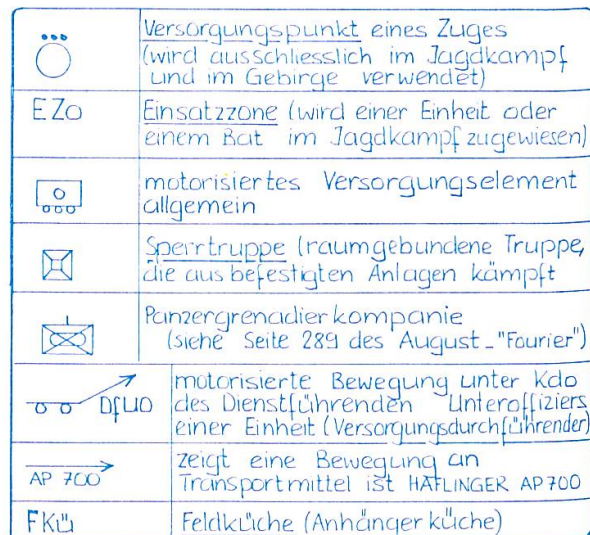 Versorgungspunkt eines Zuges
(wird ausschliesslich im Jagdkampf
und im Gebirge verwendet)
EZo
Einsatzzone (wird einer Einheit oder
einem Bat im Jagdkampf zugewiesen)
motorisiertes Versorgungselement
allgemein
Sperrtruppe (raumgebundene Truppe,
die aus befestigten Anlagen kämpft
Panzergrenadierkompanie
(siehe Seite 289 des August-"Fourier")
DfUO
motorisierte Bewegung unter Kdo
des Dienstführenden Unteroffiziers
einer Einheit (Versorgungsdurchführender)
AP 700
zeigt eine Bewegung an
Transportmittel ist HAFLINGER AP 700
FKü
Feldküche (Anhängerküche)